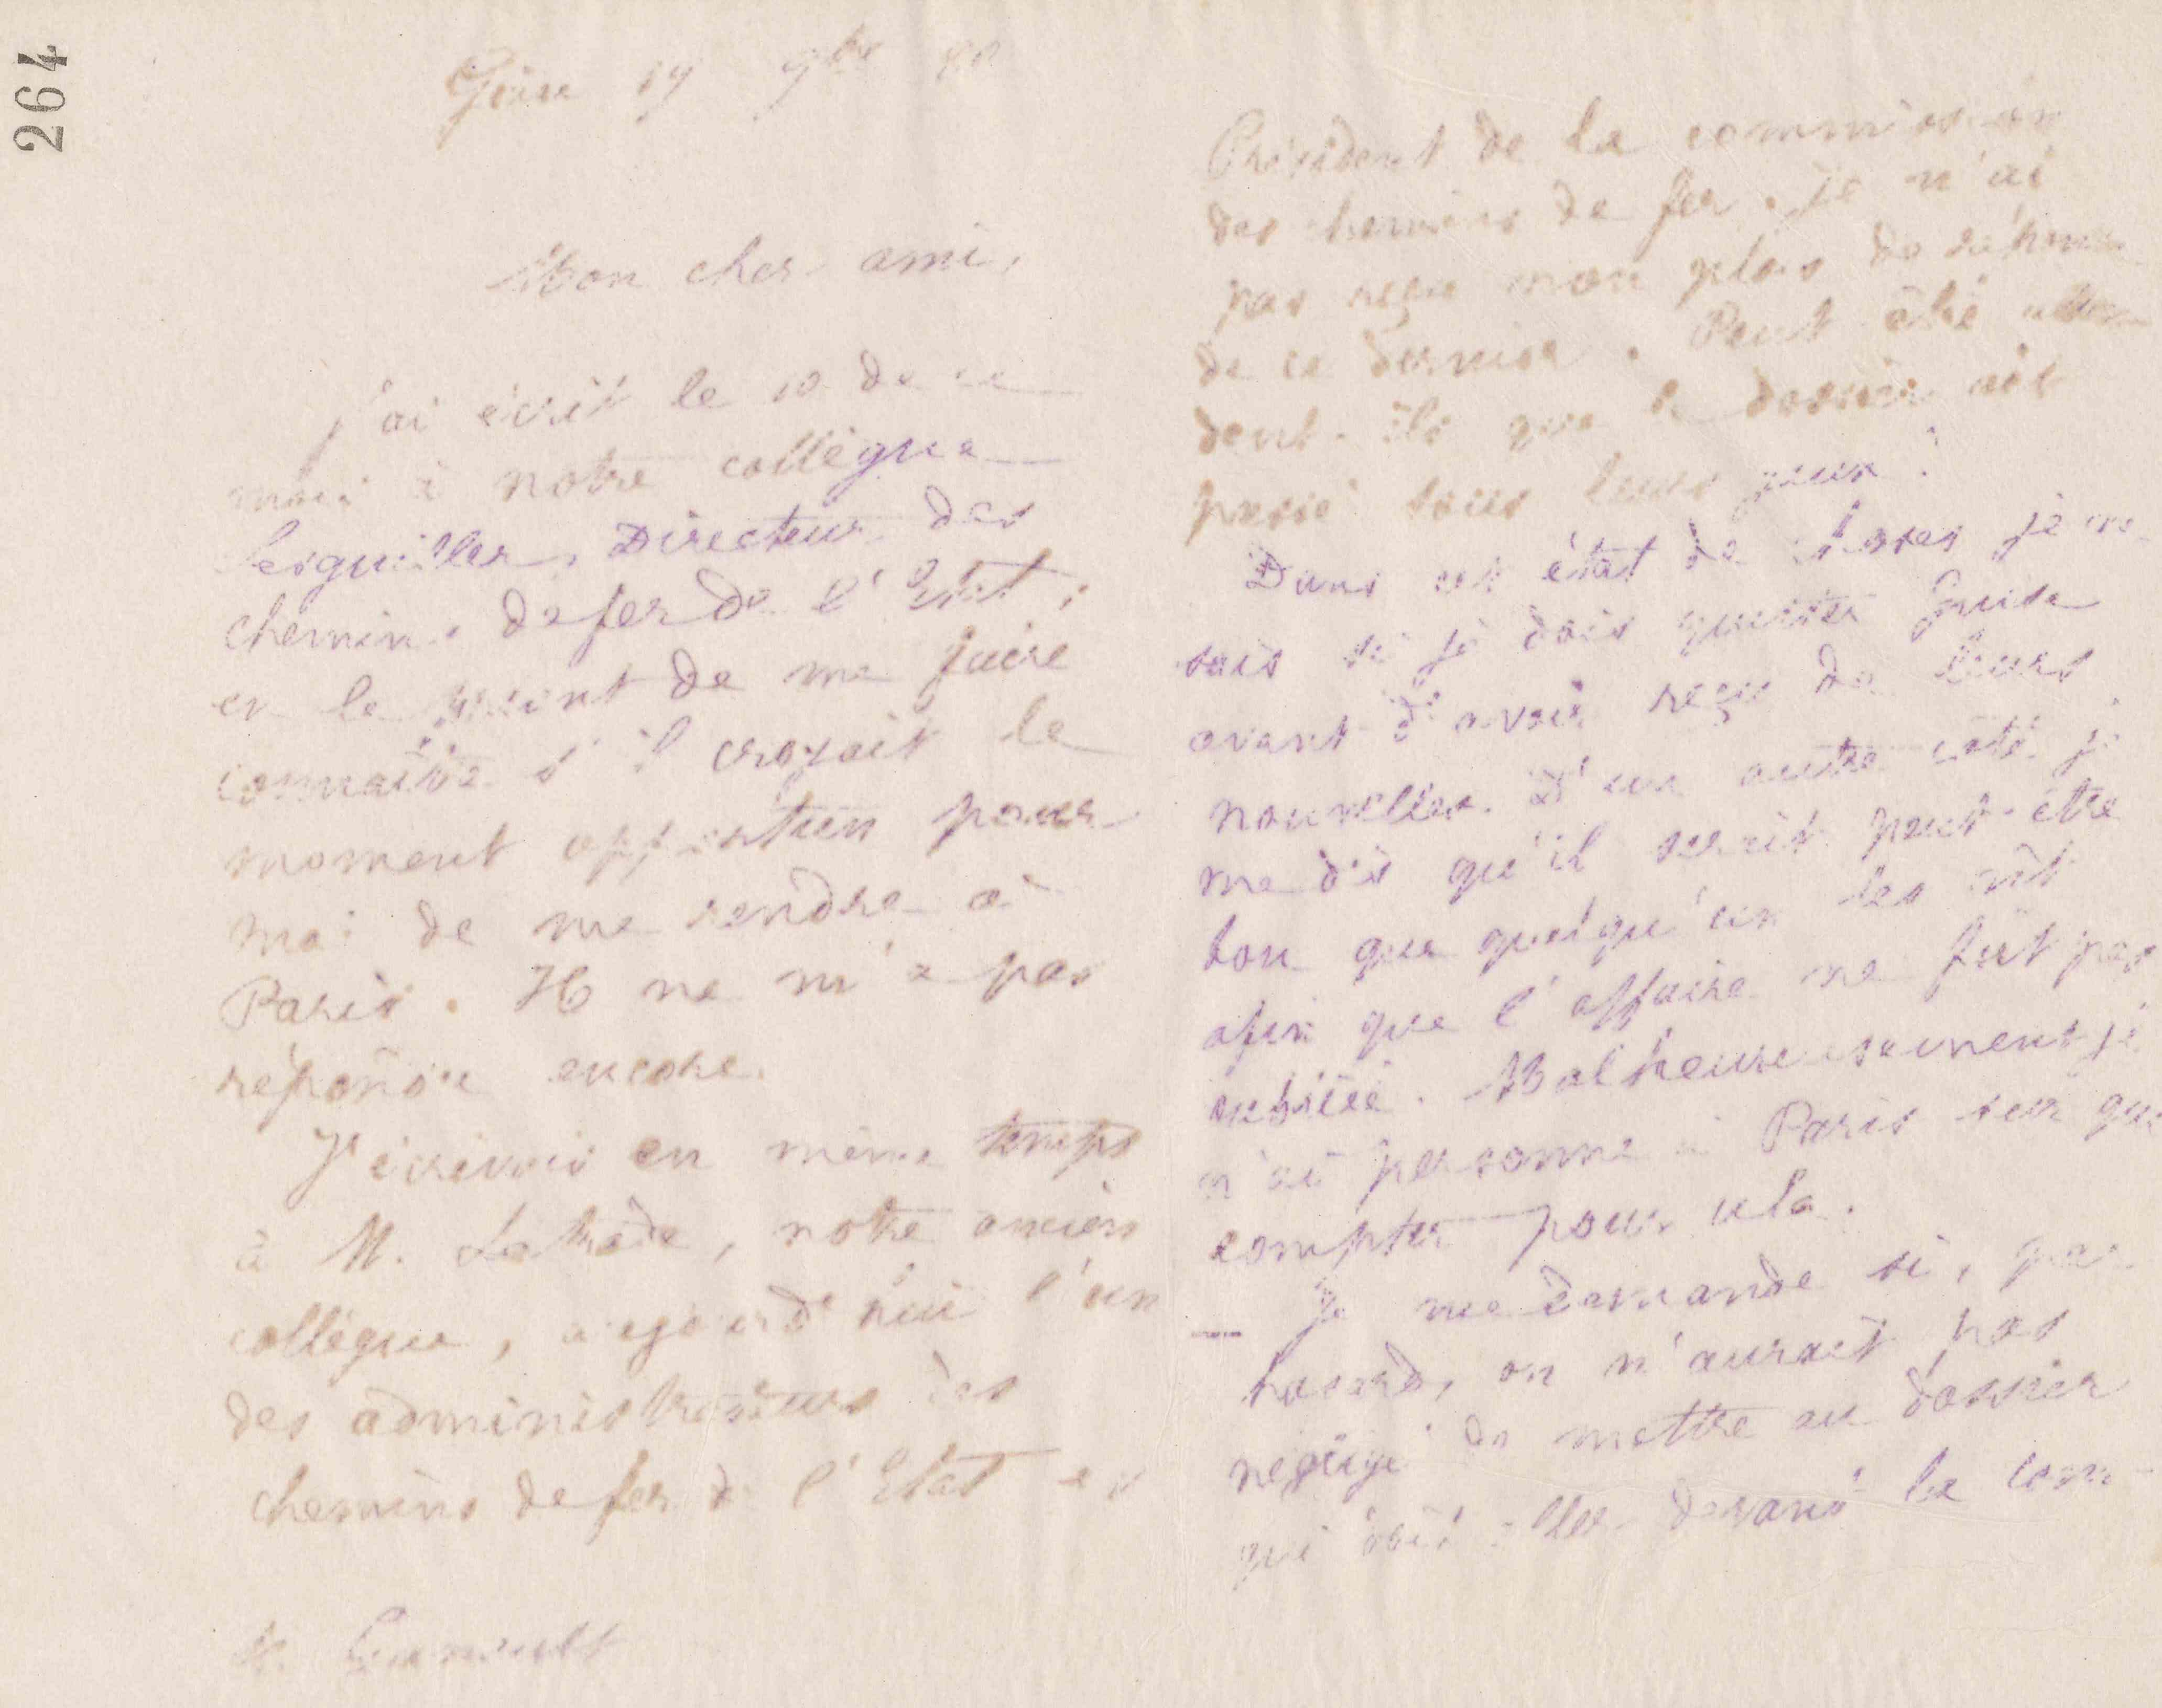 264
Guise 19 9bre 80
Mon cher ami,
J'ai écrit le 10 de ce
mois à notre collègue
Lesguiller, Directeur des
chemins de fer de l'Etat,
en le priant de me faire
connaître s'il croyait le
moment opportun pour
moi de me rendre à
Paris. Il ne m'a pas
répondu encore.
J'écrivais en même temps
à M. Latrade, notre ancien
collègue, aujourd'hui l'un
des administrateurs des
chemins de fer de l'Etat et
Président de la commission
des chemins de fer. Je n'ai
pas reçu non plus de réponse
de ce dernier. Peut être atten-
dent-ils que le dossier ait
passé sous leurs yeux.
Dans cet état de choses je ne
sais si je dois quitter Guise
avant d'avoir reçu de leurs
nouvelles. D'un autre côté je
me dis qu'il serait peut-être
bon que quelqu'un les vît
afin que l'affaire ne fût pas
oubliée. Malheureusement je
n'ai personne à Paris sur qui
compter pour cela.
— Je me demande si, par
hasard, on n'aurait pas
négligé de mettre au dossier
qui doit aller devant la com-
M.